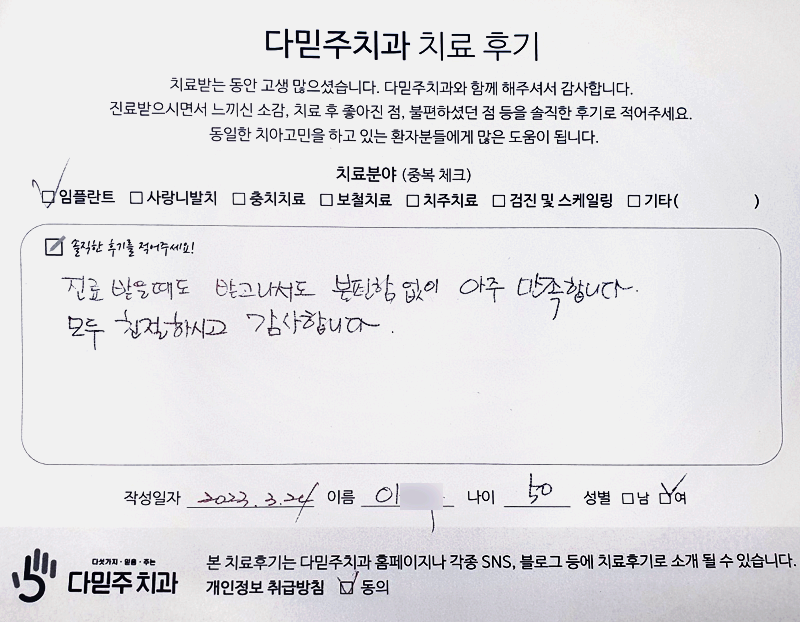 다믿주치과 치료 후기
치료받는 동안 고생 많으셨습니다. 다믿주치과와 함께 해주셔서 감사합니다.
진료받으시면서 느끼신 소감, 치료 후 좋아진 점, 불편하셨던 점 등을 솔직한 후기로 적어주세요.
동일한 치아고민을 하고 있는 환자분들에게 많은 도움이 됩니다.
치료분야 (중복 체크)
임플란트 사랑니발치 충치치료 보철치료 치주치료 검진 및 스케일링 기타( )
솔직한 후기를 적어주세요!
진료 받을때도 받고나서도 불편함 없이 아주 만족합니다.
모두 친절하시고 감사합니다.
작성일자 2023.3.24 이름 이 나이 50 성별 남 여
다섯가지·믿음·주는
다믿주치과
본 치료후기는 다믿주치과 홈페이지나 각종 SNS, 블로그 등에 치료후기로 소개 될 수 있습니다.
개인정보 취급방침 동의